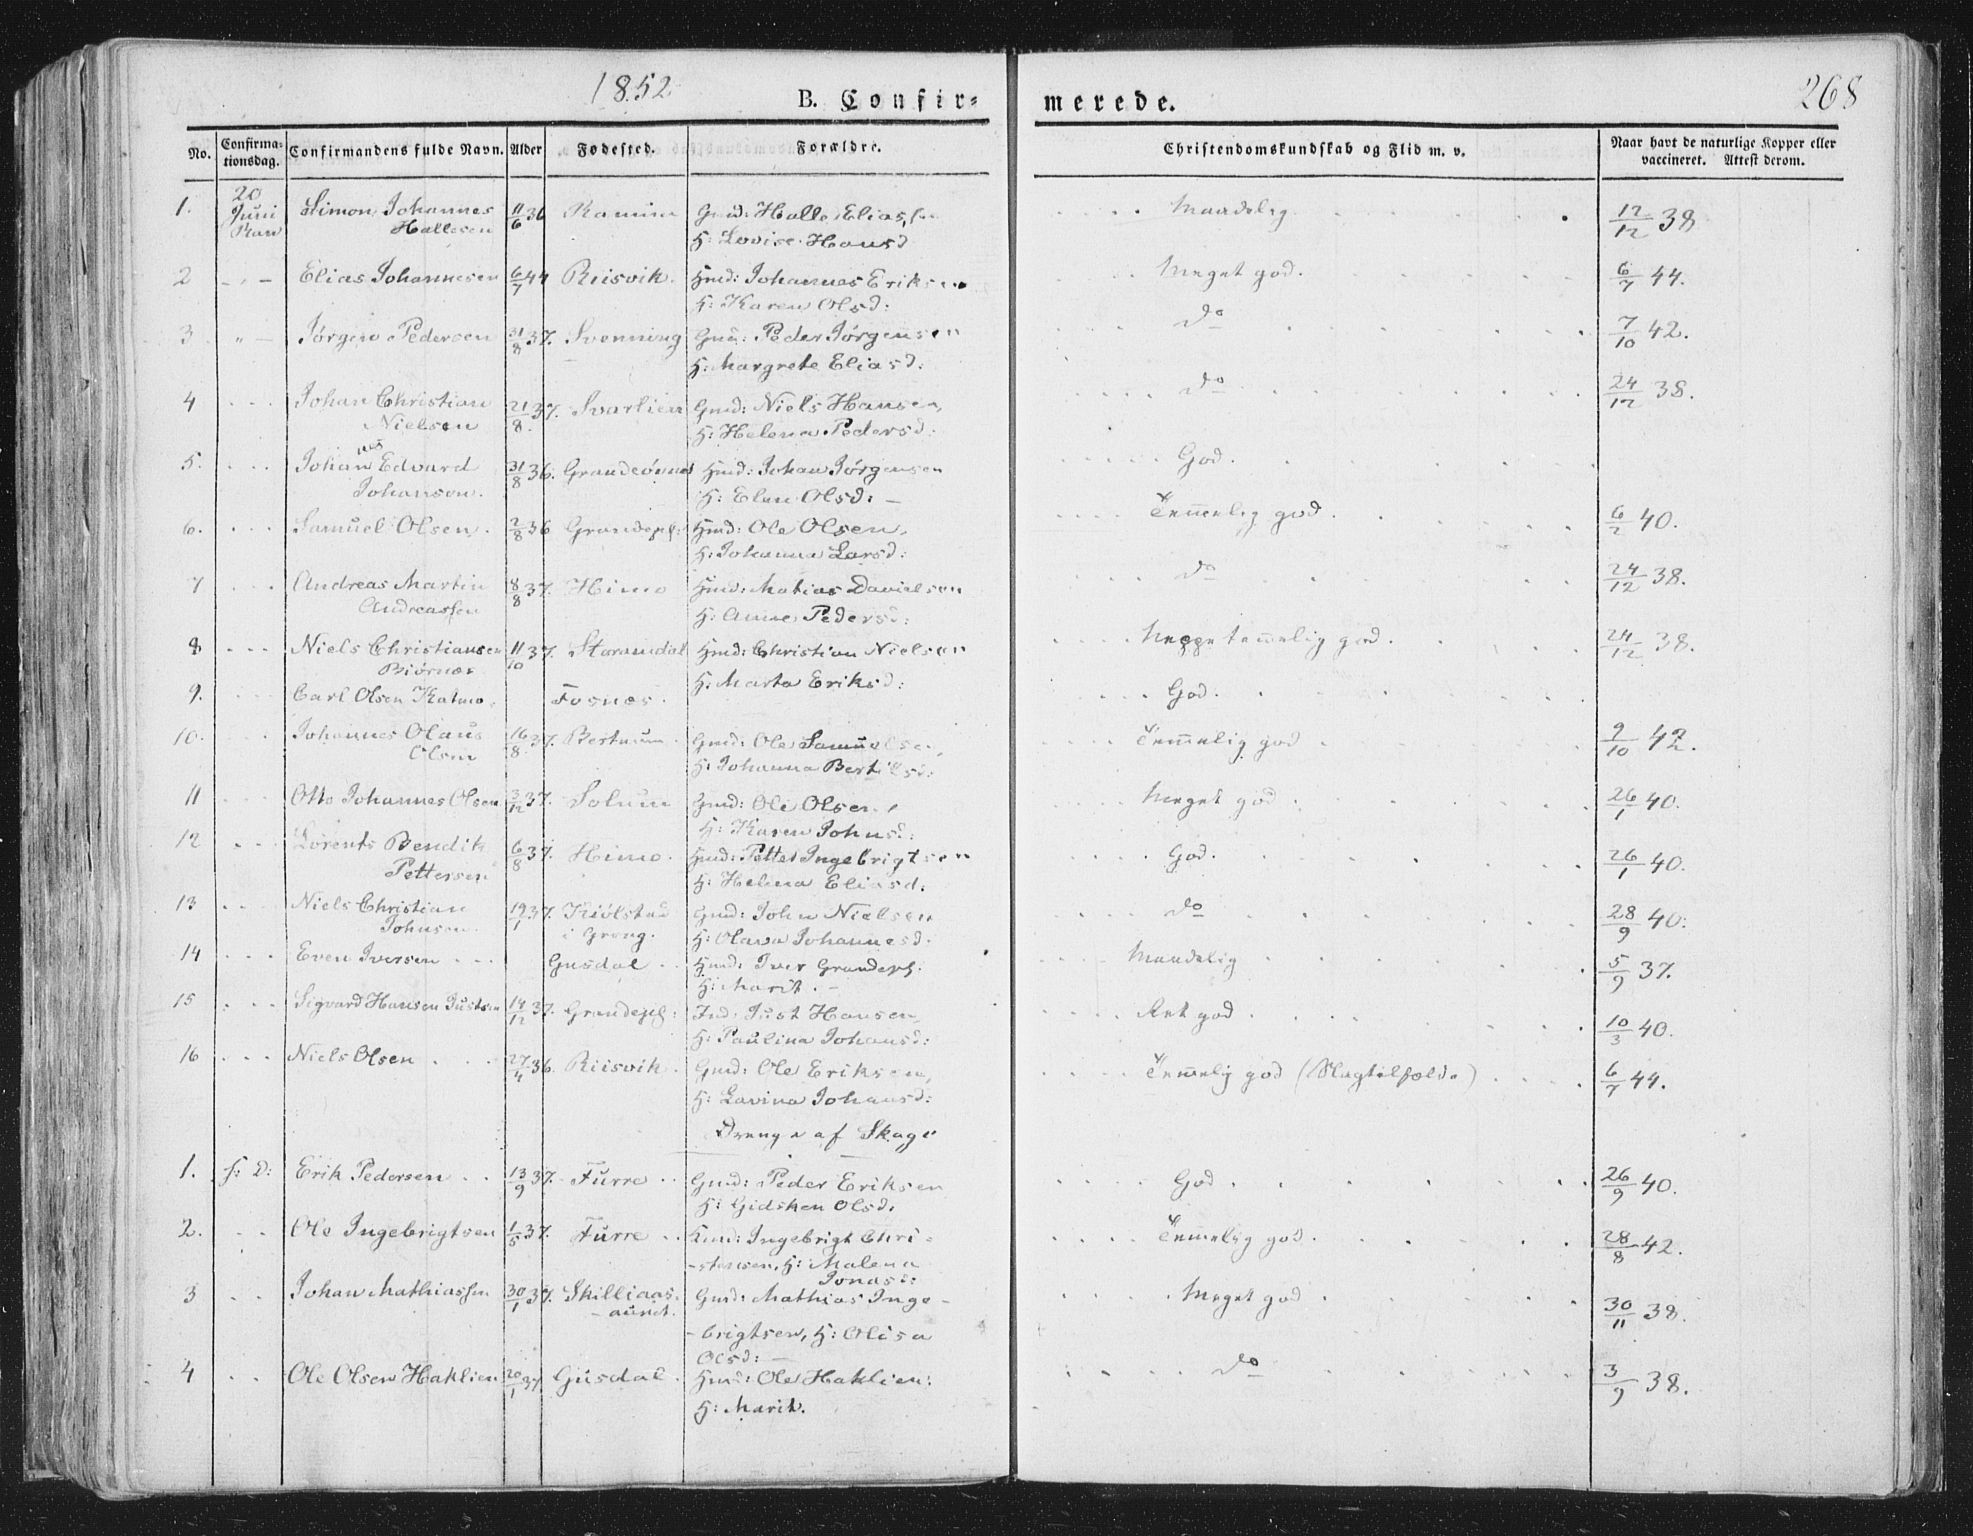 1852
B. Confir-
merede.
268
No.
Confirma-
tionsdag.
Confirmandens fulde Navn.
Alder
Fødested.
Forældre.
Christendomskundskab og Flid m. v.
Naar havt de naturlige Kopper eller
vaccineret. Attest derom.
1. 20 Juni Simon Johannes 11/6 36 Gmd: Halle Eliassen Maadelig 12/12 38
Hallesen H: Lovise Hansd
2 Elias Johannesen 6/7 44 Riisvik. Hmd: Johannes Eriksen Meget god. 6/7 44.
H: Karen Olsd:
3 Jørgen Pedersen 31/8 37. Svenning Gmd: Peder Jørgensen do 7/10 42.
H: Margrete Eliasd:
4 Johan Christian 21/8 37. Svartlien Gmd: Niels Hansen, do 24/12 38.
Nielsen H: Helena Pedersd:
5. Johannes Edvard 31/8 36. Hmd: Johan Jørgensen God.
Johansen. H: Elen Olsd: —
6. Samuel Olsen. 2/8 36 Grandepl: Hmd: Ole Olsen, Temmelig god. 6/2 40.
H: Johanna Larsd:
7 Andreas Martin 8/8 37. Himo Hmd: Matias Danielsen do 24/12 38.
Andreassen H: Anne Pedersd:
8 Niels Christiansen 11/10 37. Hmd: Christian Nielsen Neppe temmelig god. 24/12 38.
Biørnæs H: Marta Eriksd:
9. Carl Olsen Katmo. Fosnæs. God.
10. Johannes Olaus 16/8 37. Gmd: Ole Samuelsen, Temmelig god 9/10 42.
Olsen H: Johanna Bertilsd:
11 Otto Johannes Olsen 3/12 37. Solum Gmd: Ole Olsen, Meget god 26/1 40.
H: Karen Johnsd:
12 Lorents Bendik 6/8 37. Himo. Hmd: Petter Ingebrigtsen God. 26/1 40.
Pettersen H: Helena Eliasd:
13 Niels Christian 19/1 37. Kiølstad Gmd: John Nielsen do 28/9 40.
Johnsen. i Grong. H: Olava Johannesd.
14 Even Iversen Gusdal Hmd: Iver Grandepl. Maadelig 5/9 37.
H: Marit. —
15 Sigvard Hansen Justsen 14/12 37. Grandepl: Ind: Just Hansen Ret god 10/3 40.
H: Paulina Johansd:
16 Niels Olsen 27/4 36. Riisvik Gmd: Ole Eriksen, Temmelig god (Slagtilfælde) 6/7 44.
H: Lavina Johansd:
Drenge af Skage
1. s: D: Erik Pedersen 13/9 37. Furre Gmd: Peder Eriksen God 26/9 40.
H: Gidsken Olsd.
2. Ole Ingebrigtsen 1/5 37. Furre Ingebrigt Chri- Temmelig god. 28/8 42.
-stensen, H: Malena
Jonasd:
3 Johan Mathiassen 30/1 37. Skilliaas- Gmd: Mathias Inge- Meget god 30/11 38.
-aunet. -brigtsen, H: Olisa
Olsd: —
4 Ole Olsen Haklien 20/1 37 Gusdal Hmd: Ole Haklien. do 3/9 38.
H: Marit.